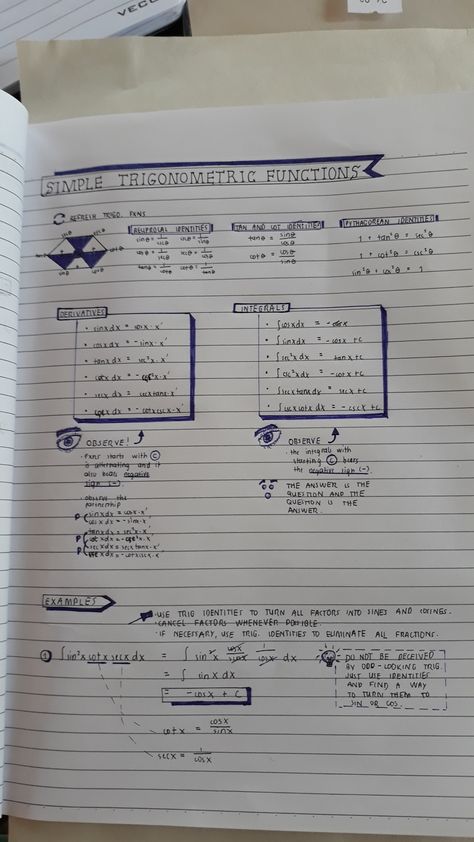 VECO
SIMPLE TRIGONOMETRIC FUNCTIONS
REFRESH TRIGO. FXNS
RECIPROCAL IDENTITIES
sinθ = 1/cscθ cscθ = 1/sinθ
cosθ = 1/secθ secθ = 1/cosθ
tanθ = 1/cotθ cotθ = 1/tanθ
TAN AND COT IDENTITIES
tanθ = sinθ/cosθ
cotθ = cosθ/sinθ
PYTHAGOREAN IDENTITIES
1 + tan²θ = sec²θ
1 + cot²θ = csc²θ
sin²θ + cos²θ = 1
DERIVATIVES
• sinxdx = cosx·x'
• cosxdx = -sinx·x'
• tanxdx = sec²x·x'
• cotxdx = -csc²x·x'
• secxdx = secxtanx·x'
• cscxdx = -cotxcscx·x'
OBSERVE!
• fxns starts with C
is alternating and it
also bears negative
sign (-)
• observe the
partnership
P sinxdx = cosx·x'
cosxdx = -sinx·x'
P tanxdx = sec²x·x'
cotxdx = -csc²x·x'
P secxdx = secxtanx·x'
cscxdx = -cotxcscx·x'
INTEGRALS
• ∫cosxdx =
• ∫sinxdx = -cosx +c
• ∫sec²xdx = tanx+c
• ∫csc²xdx = -cotx+c
• ∫secxtanxdx = secx+c
• ∫cscxcotxdx = -cscx+c
OBSERVE
• the integrals with
starting C bears
the negative sign (-)
THE ANSWER IS THE
QUESTION AND THE
QUESTION IS THE
ANSWER.
EXAMPLES
• USE TRIG IDENTITIES TO TURN ALL FACTORS INTO SINES AND COSINES.
• CANCEL FACTORS WHENEVER POSSIBLE.
• IF NECESSARY, USE TRIG. IDENTITIES TO ELIMINATE ALL FRACTIONS.
1 ∫sin²x cotx secx dx = ∫ sin²x cosx/sinx 1/cosx dx
= ∫ sinx dx
= -cosx + C
cotx = cosx/sinx
secx = 1/cosx
DO NOT BE DECEIVED
BY ODD-LOOKING TRIG.
JUST USE IDENTITIES
AND FIND A WAY
TO TURN THEM TO
SIN OR COS.